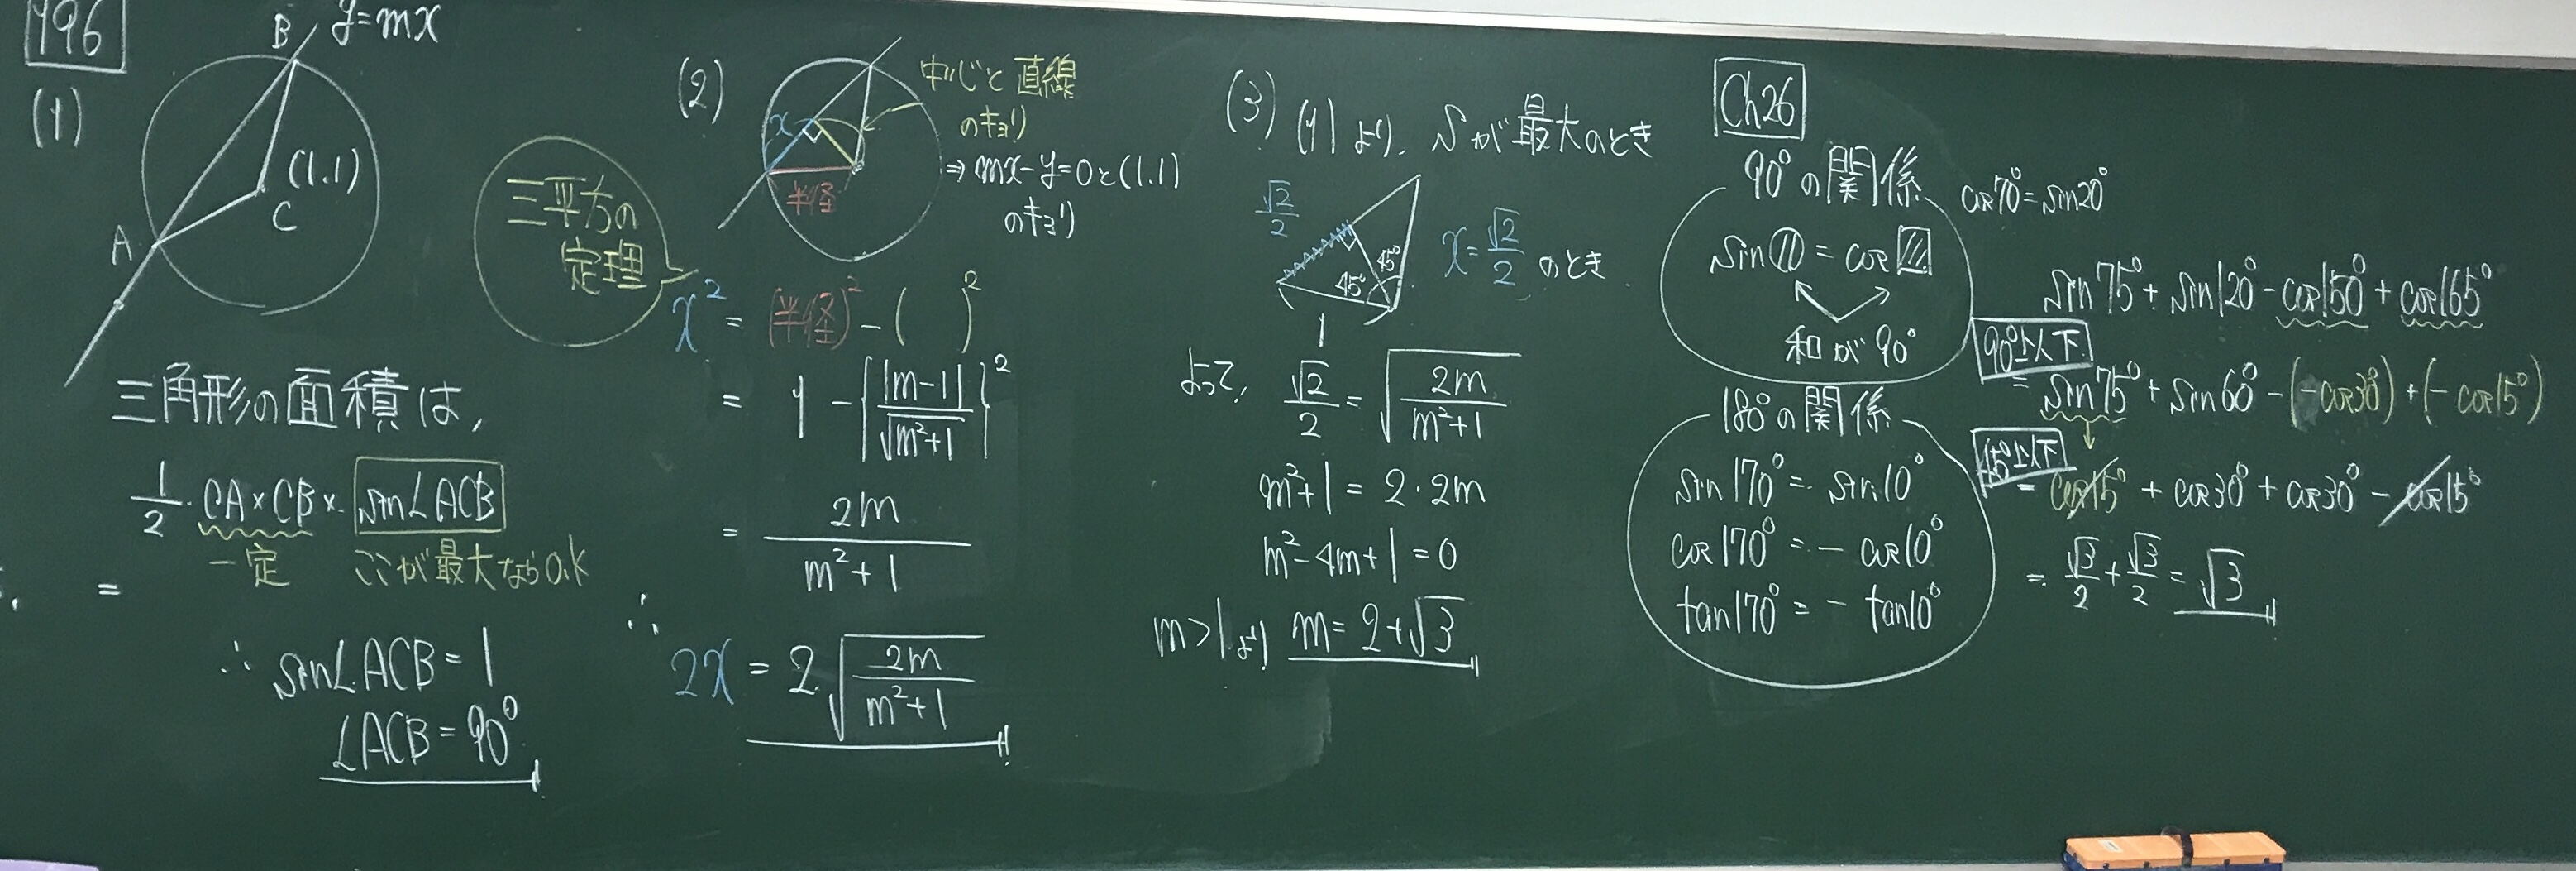 196
(1)
B y=mx
(1.1)
C
A
三角形の面積は,
1/2・CA×CB×sin∠ACB
一定 ここが最大ならO.K
=
∴ sin∠ACB=1
∠ACB=90°
(2)
中心と直線
のキョリ
⇒ mx-y=0と(1.1)
のキョリ
x
半径
三平方の
定理
x² = (半径)² - ( )²
= 1 - {|m-1|/√(m²+1)}²
= 2m/(m²+1)
∴ 2x = 2√(2m/(m²+1))
(3) (1)より, Sが最大のとき
√2/2
45°
45°
1
x=√2/2 のとき
よって, √2/2 = √(2m/(m²+1))
m²+1 = 2・2m
m²-4m+1=0
m>1より m=2+√3
Ch26
90°の関係
cos70°=sin20°
sin〇=cos□
和が90°
180°の関係
sin170°= sin10°
cos170°= - cos10°
tan170°= - tan10°
sin75°+sin120°-cos150°+cos165°
90°以下
= sin75°+sin60°-(-cos30°)+(-cos15°)
45°以下
= cos15°+cos30°+cos30°-cos15°
= √3/2+√3/2=√3